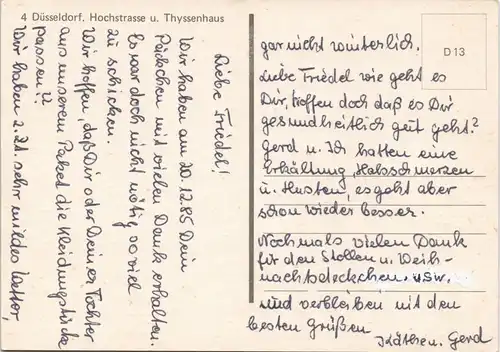 4 Düsseldorf, Hochstrasse u. Thyssenhaus
D 13
Liebe Friedel!
Wir haben am 20.12.85 Dein
Päckchen mit vielen Dank erhalten.
Es war doch nicht nötig so viel
zu schicken.
Wir hoffen, daß Dir oder Deiner Tochter
aus unserem Paket die Kleidungstücke
passen!?
Wir haben z.Zt. sehr mildes Wetter,
gar nicht winterlich.
Liebe Friedel wie geht es
Dir, hoffen doch daß es Dir
gesundheitlich gut geht?
Gerd u. Ich hatten eine
Erkältung, Halsschmerzen
u. Husten, es geht aber
schon wieder besser.
Nochmals vielen Dank
für den Stollen u. Weih-
nachtsdeckchen. usw.
und verbleiben mit den
besten Grüßen
Käthen. Gerd